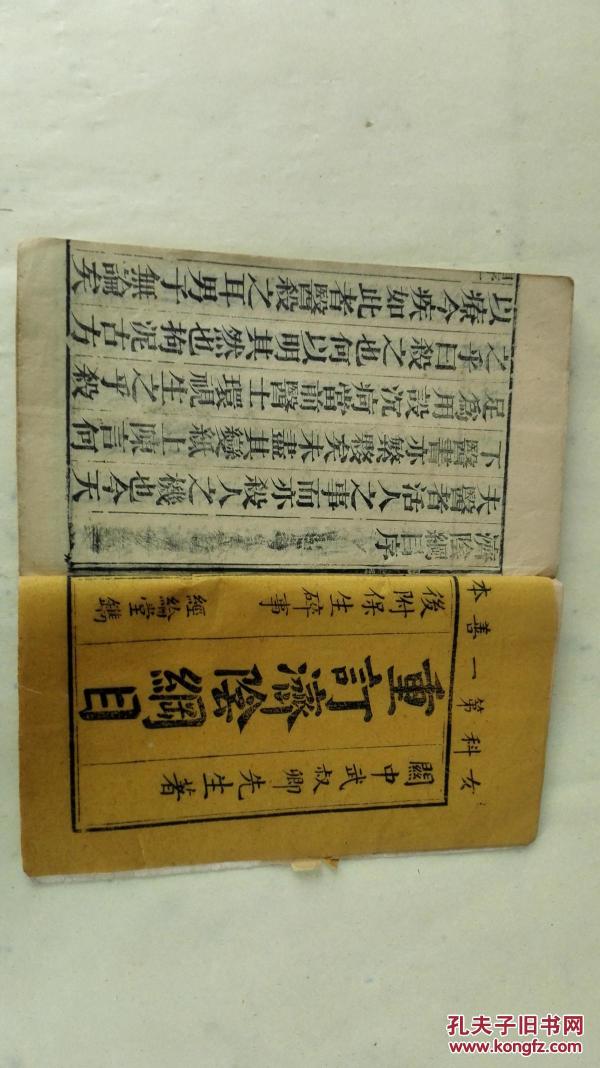 女科第一善本
關中武叔卿先生著
重訂濟陰綱目
後附保生碎事
經綸堂鐫
濟陰綱目序
夫醫者活人之事而亦殺人之機也今天
下醫書亦繁夥矣未盡其變紙上陳言何
足為用設沉疴當前醫士環視生之乎殺
之乎曰殺之也何以明其然也拘泥古方
以療今疾如此者醫殺之耳男子無論矣
孔夫子旧书网
www.kongfz.com